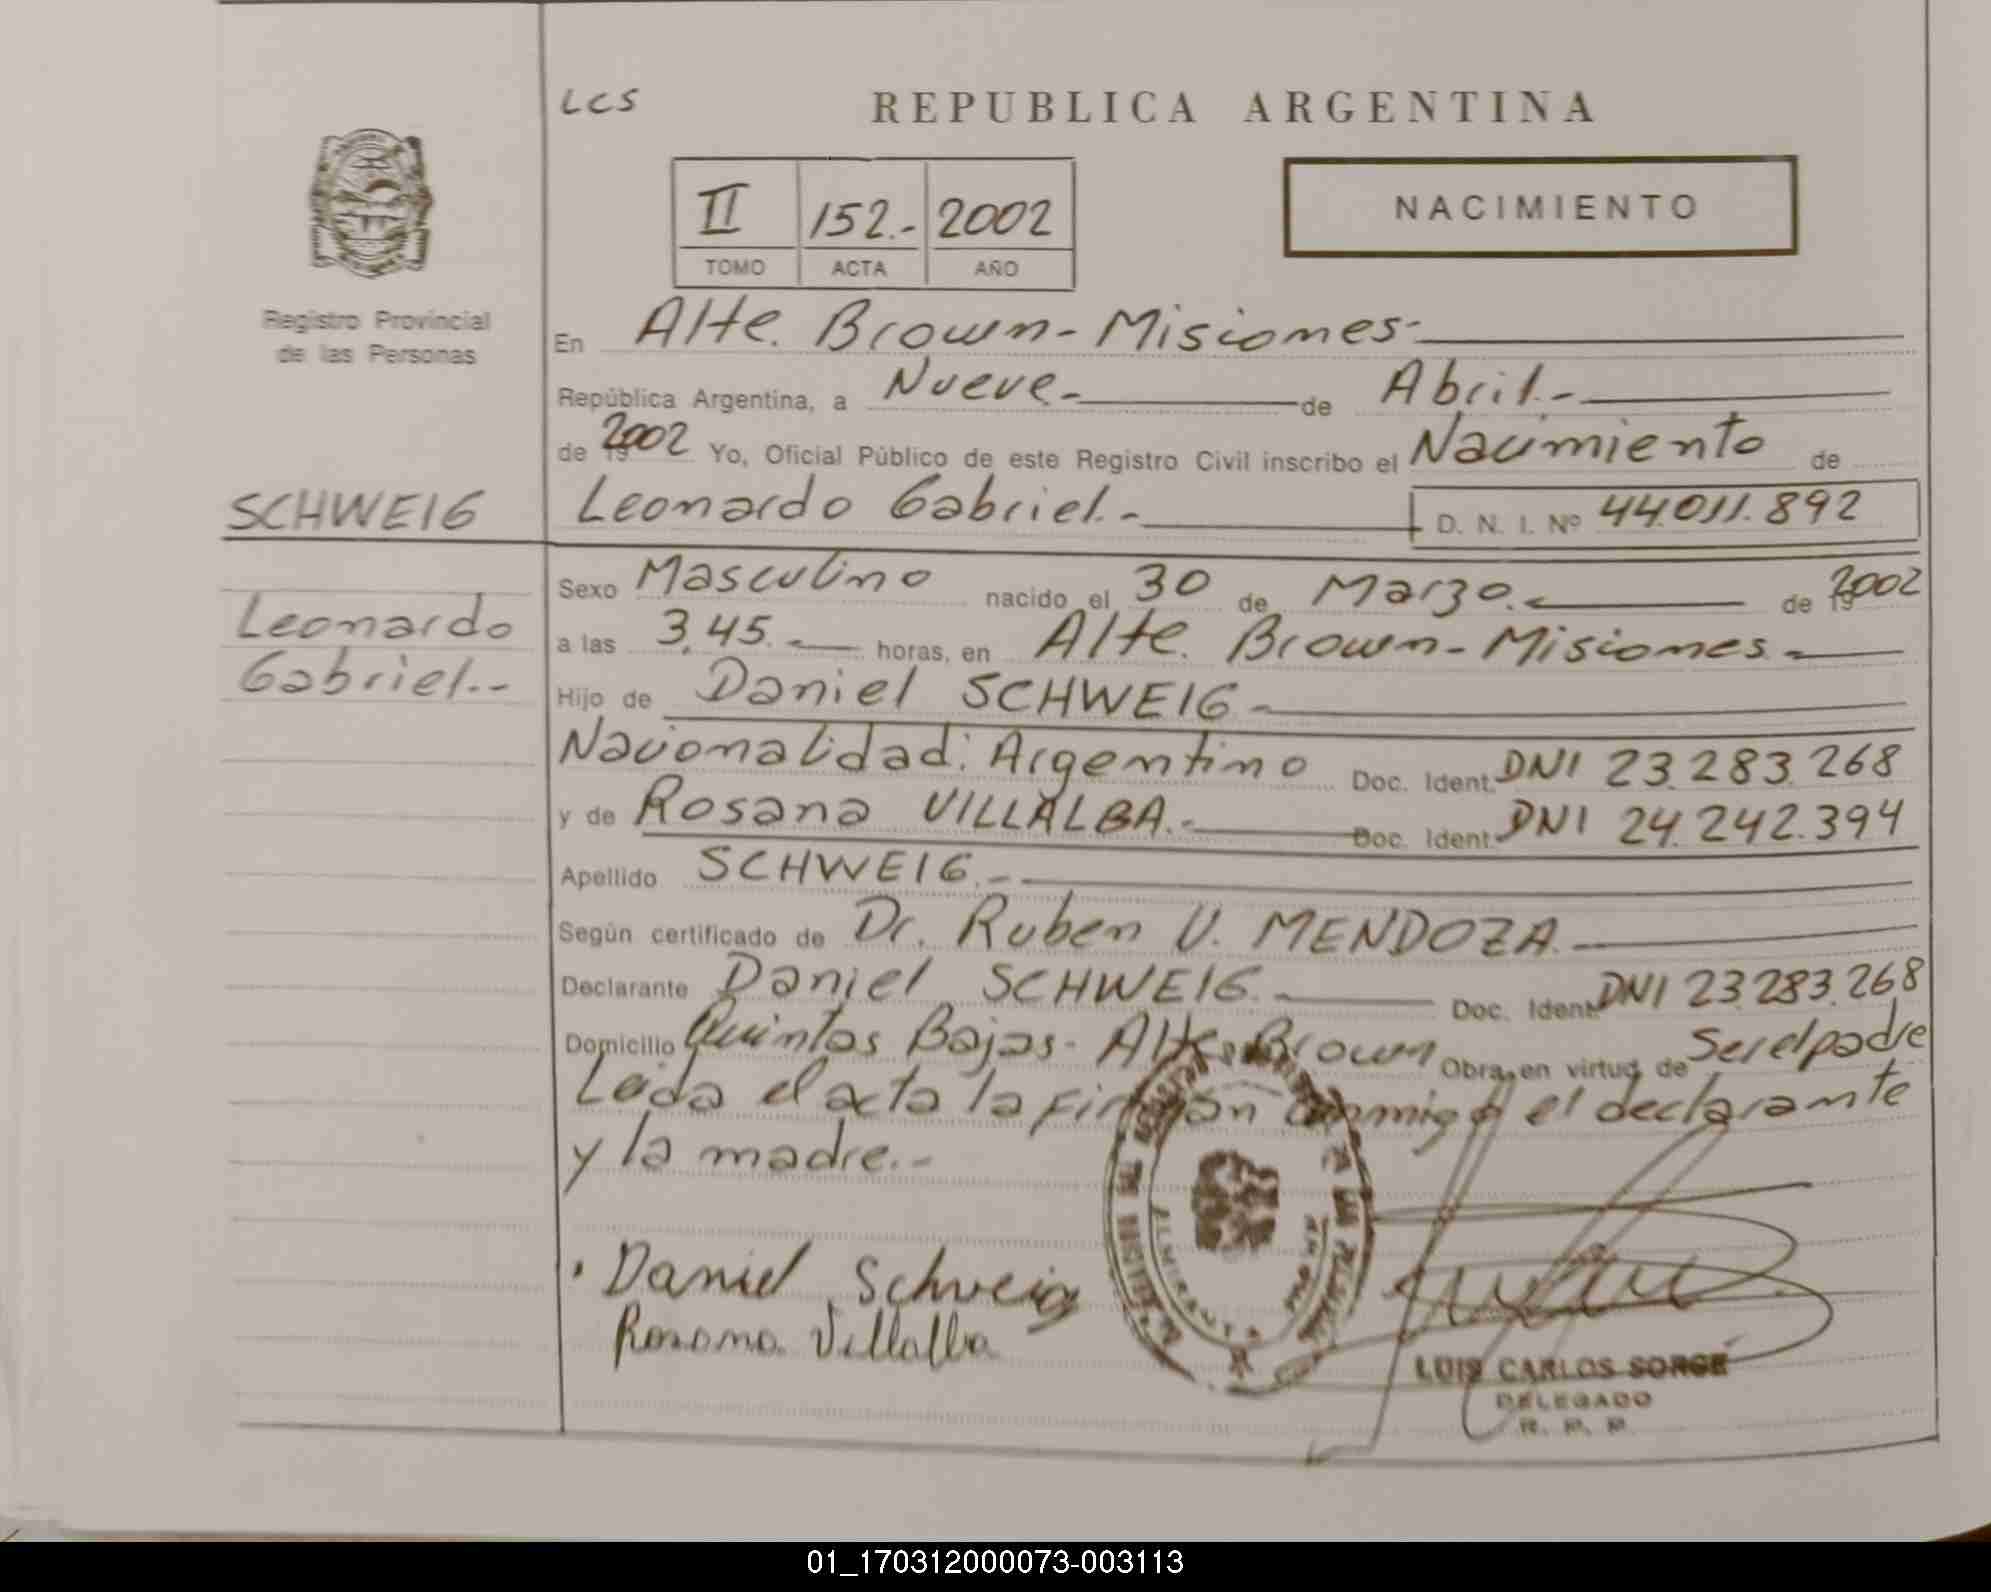 LCS
REPUBLICA ARGENTINA
II 152.- 2002
TOMO ACTA AÑO
NACIMIENTO
Registro Provincial
de las Personas
En Alte. Brown - Misiones.-
República Argentina, a Nueve.- de Abril.-
de 2002 Yo, Oficial Público de este Registro Civil inscribo el Nacimiento de
SCHWEIG Leonardo Gabriel.- D. N. I. Nº 44.011.892
Leonardo
Gabriel.-
Sexo Masculino nacido el 30 de Marzo.- de 2002
a las 3,45.- horas, en Alte. Brown - Misiones.-
Hijo de Daniel SCHWEIG.-
Nacionalidad: Argentino Doc. Ident. DNI 23.283.268
y de Rosana VILLALBA.- Doc. Ident. DNI 24.242.394
Apellido SCHWEIG.-
Según certificado de Dr. Ruben U. MENDOZA.
Declarante Daniel SCHWEIG.- Doc. Ident. DNI 23.283.268
Domicilio Quintas Bajas - Alte. Brown Obra, en virtud de Ser el padre
Leida el acta la firman conmigo el declarante
y la madre.-
Daniel Schweig
Rosana Villalba
LUIS CARLOS SORGE
DELEGADO
R. P. P.
01_170312000073-003113